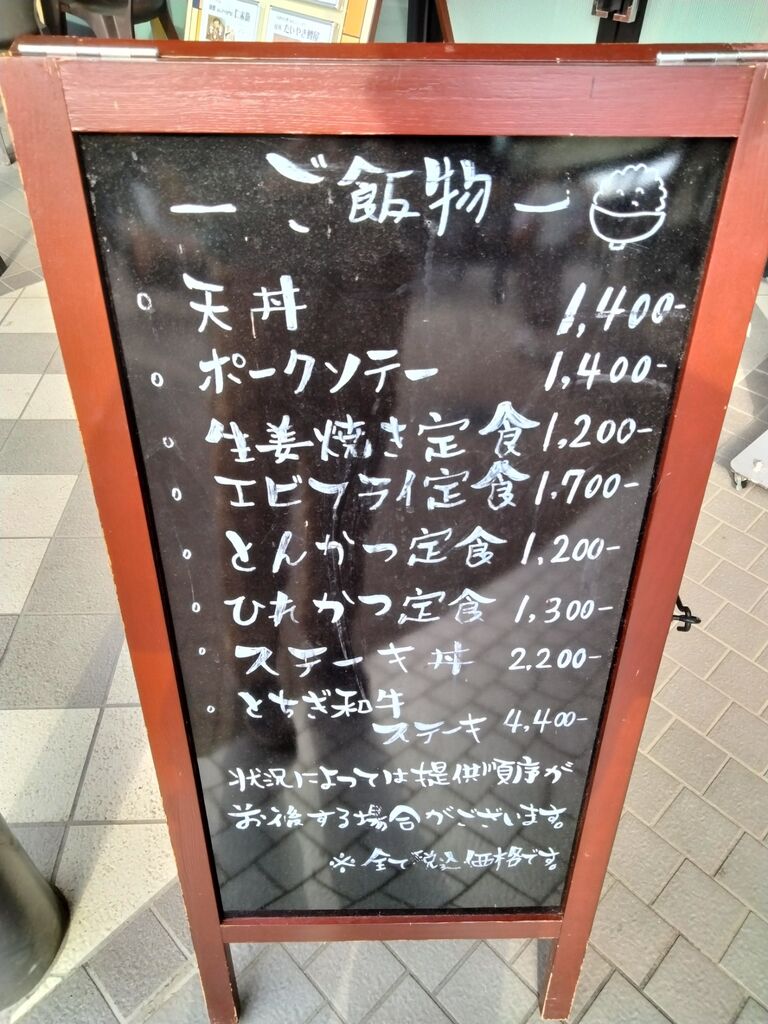 ーご飯物ー
。天丼 1,400-
。ポークソテー 1,400-
。生姜焼き定食 1,200-
。エビフライ定食 1,700-
。とんかつ定食 1,200-
。ひれかつ定食 1,300-
。ステーキ丼 2,200-
。とちぎ和牛
ステーキ 4,400-
状況によっては提供順序が
前後する場合がございます。
※全て税込価格です。